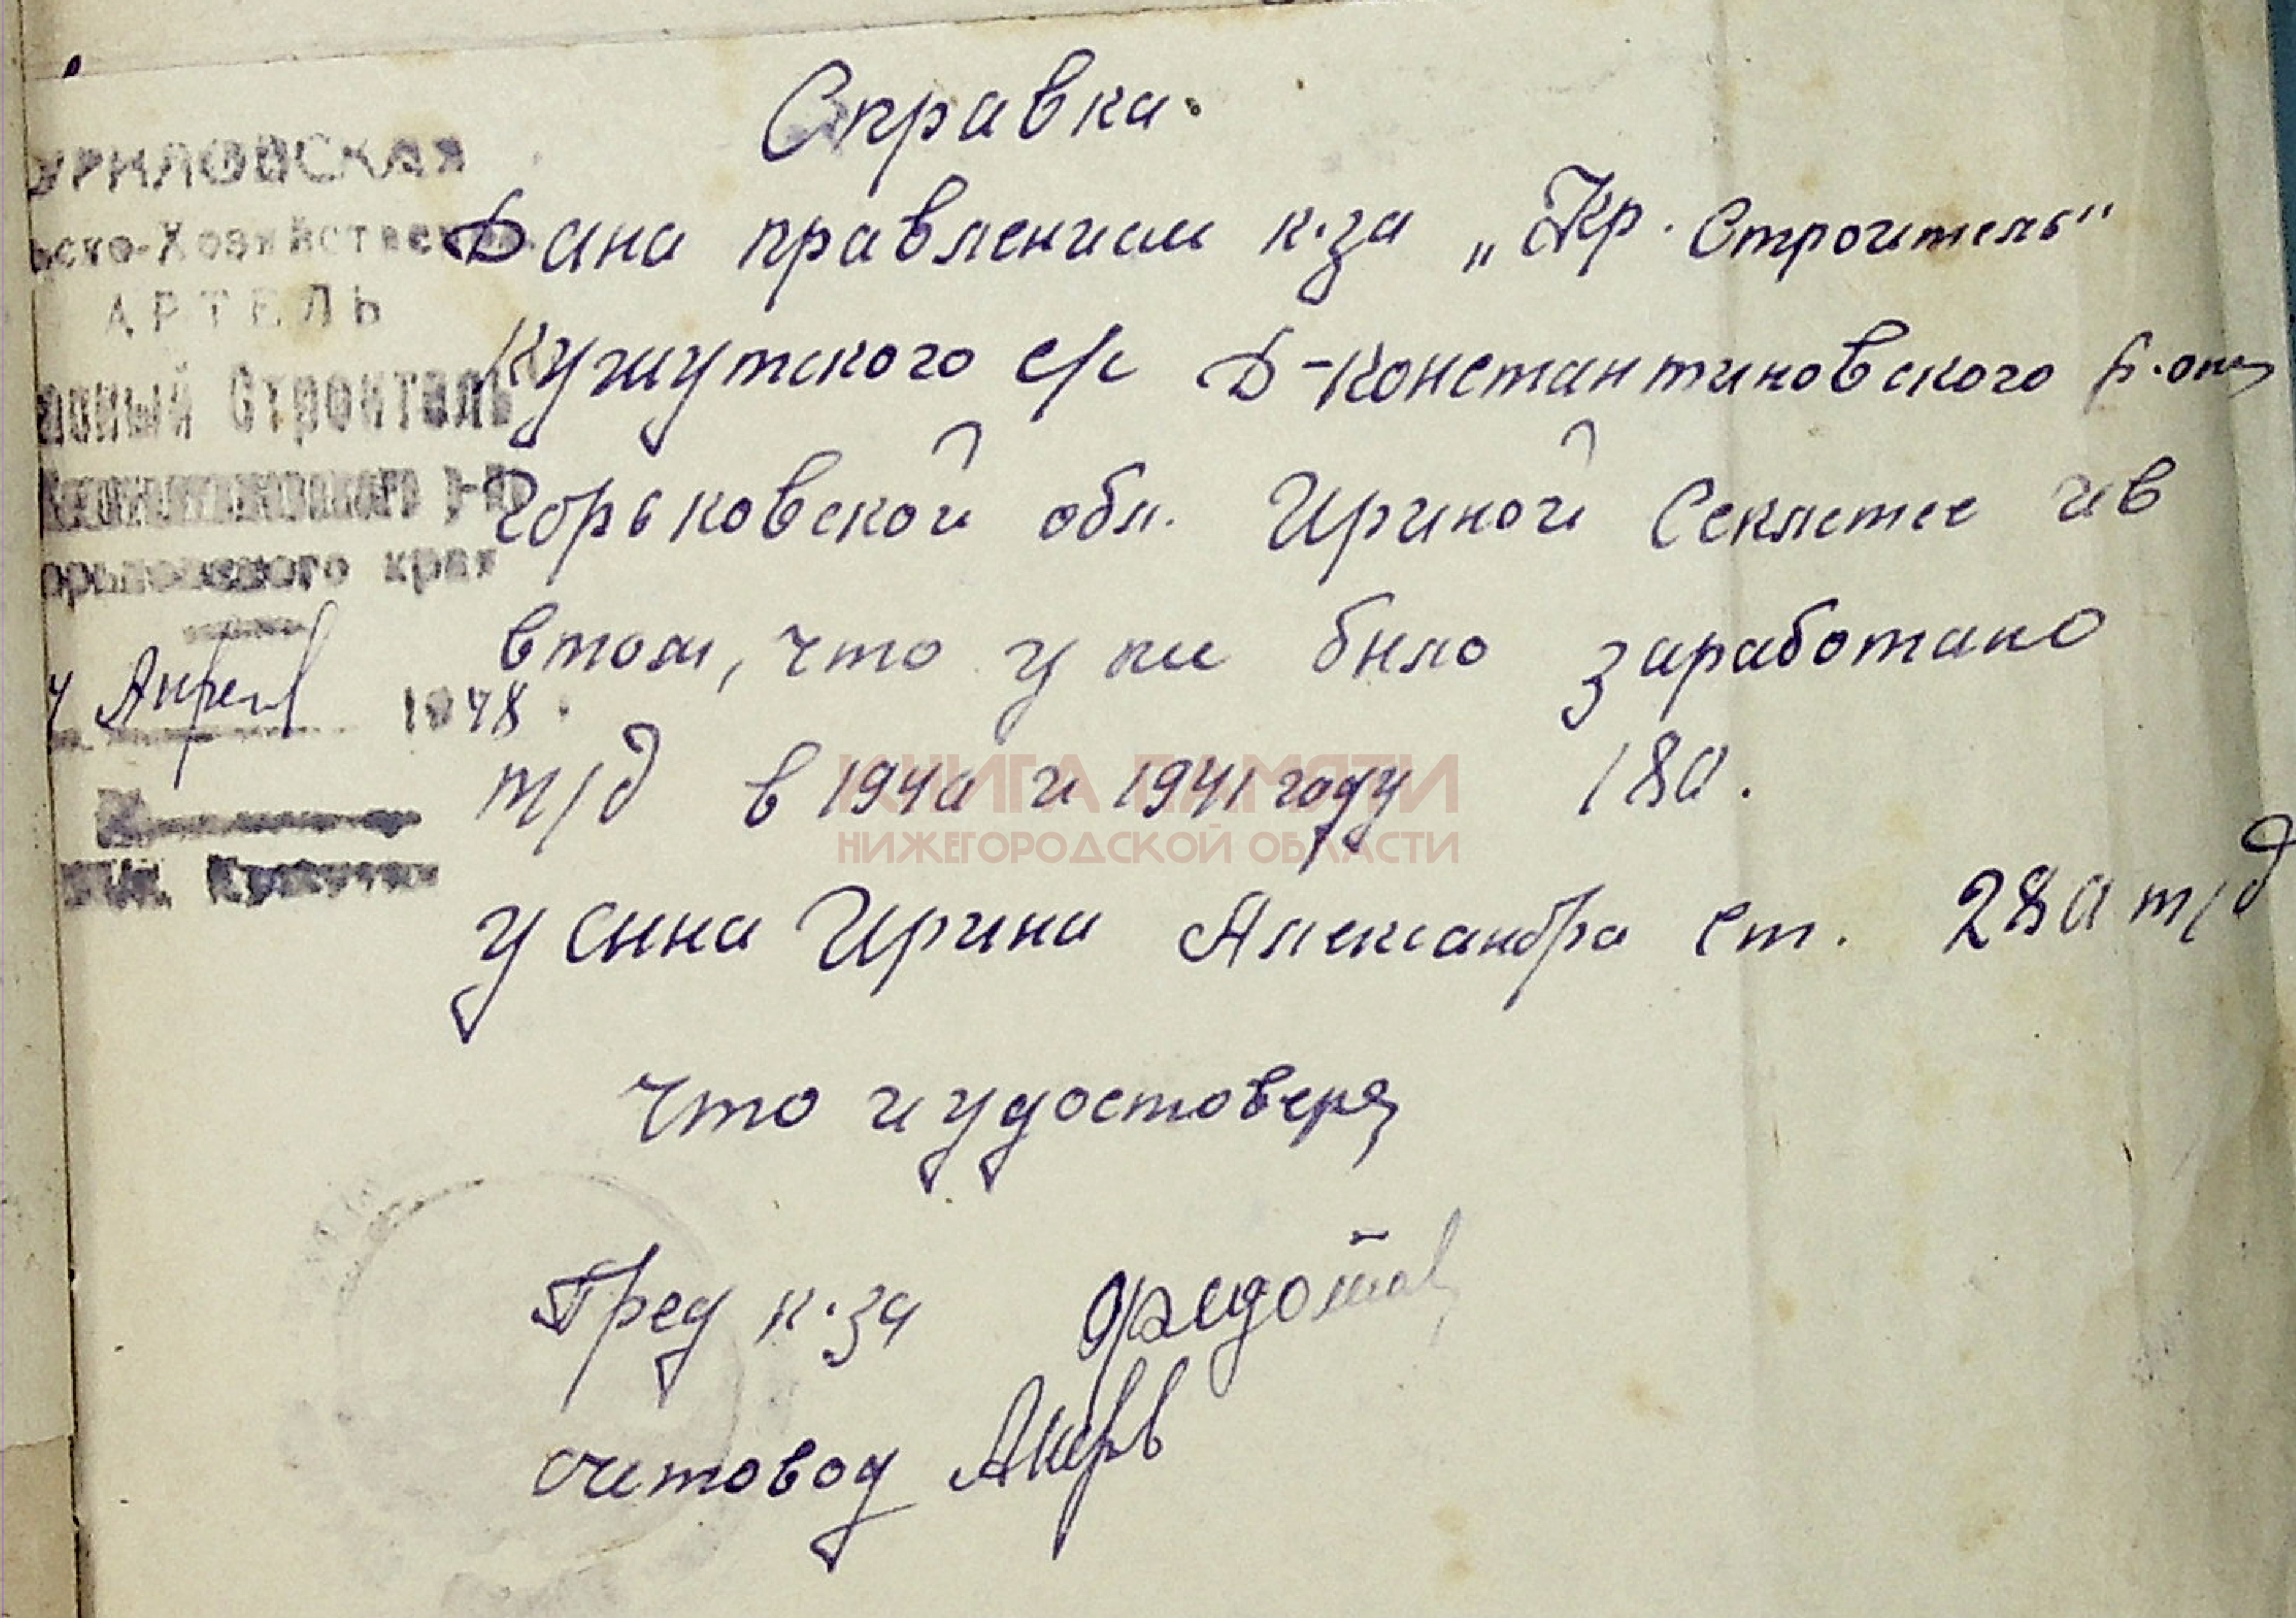 Справка.
Дана правлением к-за „Кр. Строитель"
Кужутского с/с Д-Константиновского р.она
Горьковской обл. Ириной Секлетее ив
втом, что у ни было заработано
т/д в 1940 и 1941 году 180.
у сына Ирина Александра ст. 280 т/д
что и удостоверя
Пред к-за Федотов
счетовод
УРИЛОВСКАЯ
ьско-Хозяйствен
АРТЕЛЬ
асный Строитель
Константиновского р-на
орьковского края
Апрел 1948
КНИГА ПАМЯТИ
НИЖЕГОРОДСКОЙ ОБЛАСТИ